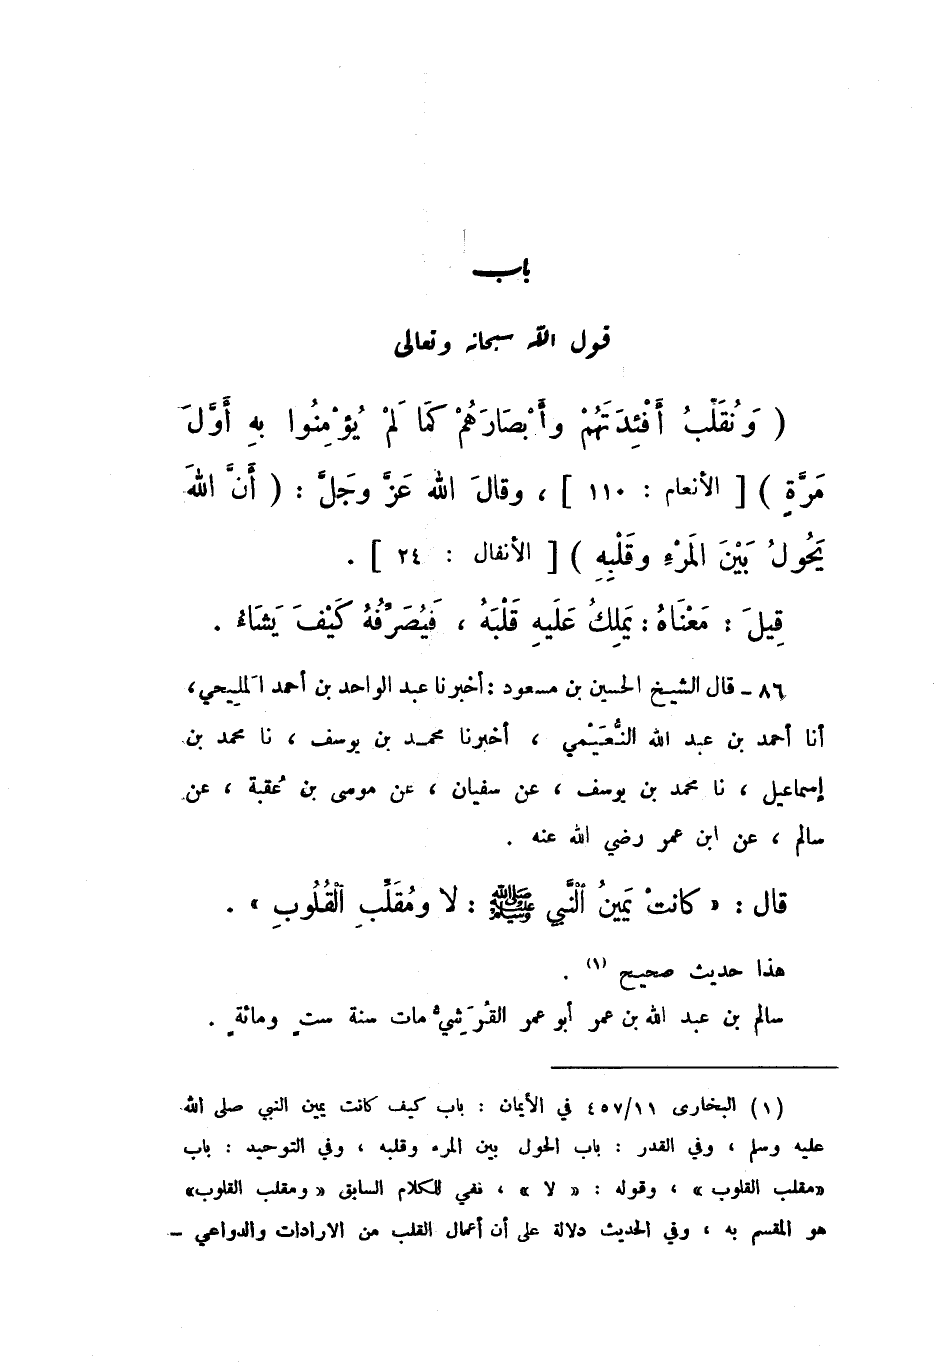 باب
قول الله سبحانه وتعالى
( وَنُقَلِّبُ أَفْئِدَتَهُمْ وأَبْصَارَهُمْ كَمَا لَمْ يُؤْمِنُوا بِهِ أَوَّلَ
مَرَّةٍ ) [ الأنعام : ١١٠ ] ، وقالَ الله عَزَّ وجَلَّ : ( أَنَّ اللهَ
يَحُولُ بَيْنَ المَرْءِ وقَلْبِهِ ) [ الأنفال : ٢٤ ] .
قِيلَ : مَعْنَاهُ : يَمْلِكُ عَلَيهِ قَلْبَهُ ، فَيُصَرِّفُهُ كَيْفَ يَشَاءُ .
٨٦ – قال الشيخ الحسين بن مسعود : أخبرنا عبد الواحد بن أحمد المَليحي ،
أنا أحمد بن عبد الله النُّعَيْمي ، أخبرنا محمد بن يوسف ، نا محمد بن
إسماعيل ، نا محمد بن يوسف ، عن سفيان ، عن موسى بن عُقبة ، عن
سالم ، عن ابن عمر رضي الله عنه .
قال : « كانتْ يَمِينُ ٱلنَّبي ﷺ : لا ومُقَلِّبِ ٱلْقُلُوبِ » .
هذا حديث صحيح (١) .
سالم بن عبد الله بن عمر أبو عمر القُرَشيُّ مات سنة ستٍ ومائةٍ .
(١) البخارى ٤٥٧/١١ في الأيمان : باب كيف كانت يمين النبي صلى الله
عليه وسلم ، وفي القدر : باب الحول بين المرء وقلبه ، وفي التوحيد : باب
«مقلب القلوب » ، وقوله : « لا » ، نفي للكلام السابق « ومقلب القلوب»
هو المقسم به ، وفي الحديث دلالة على أن أعمال القلب من الارادات والدواعي –